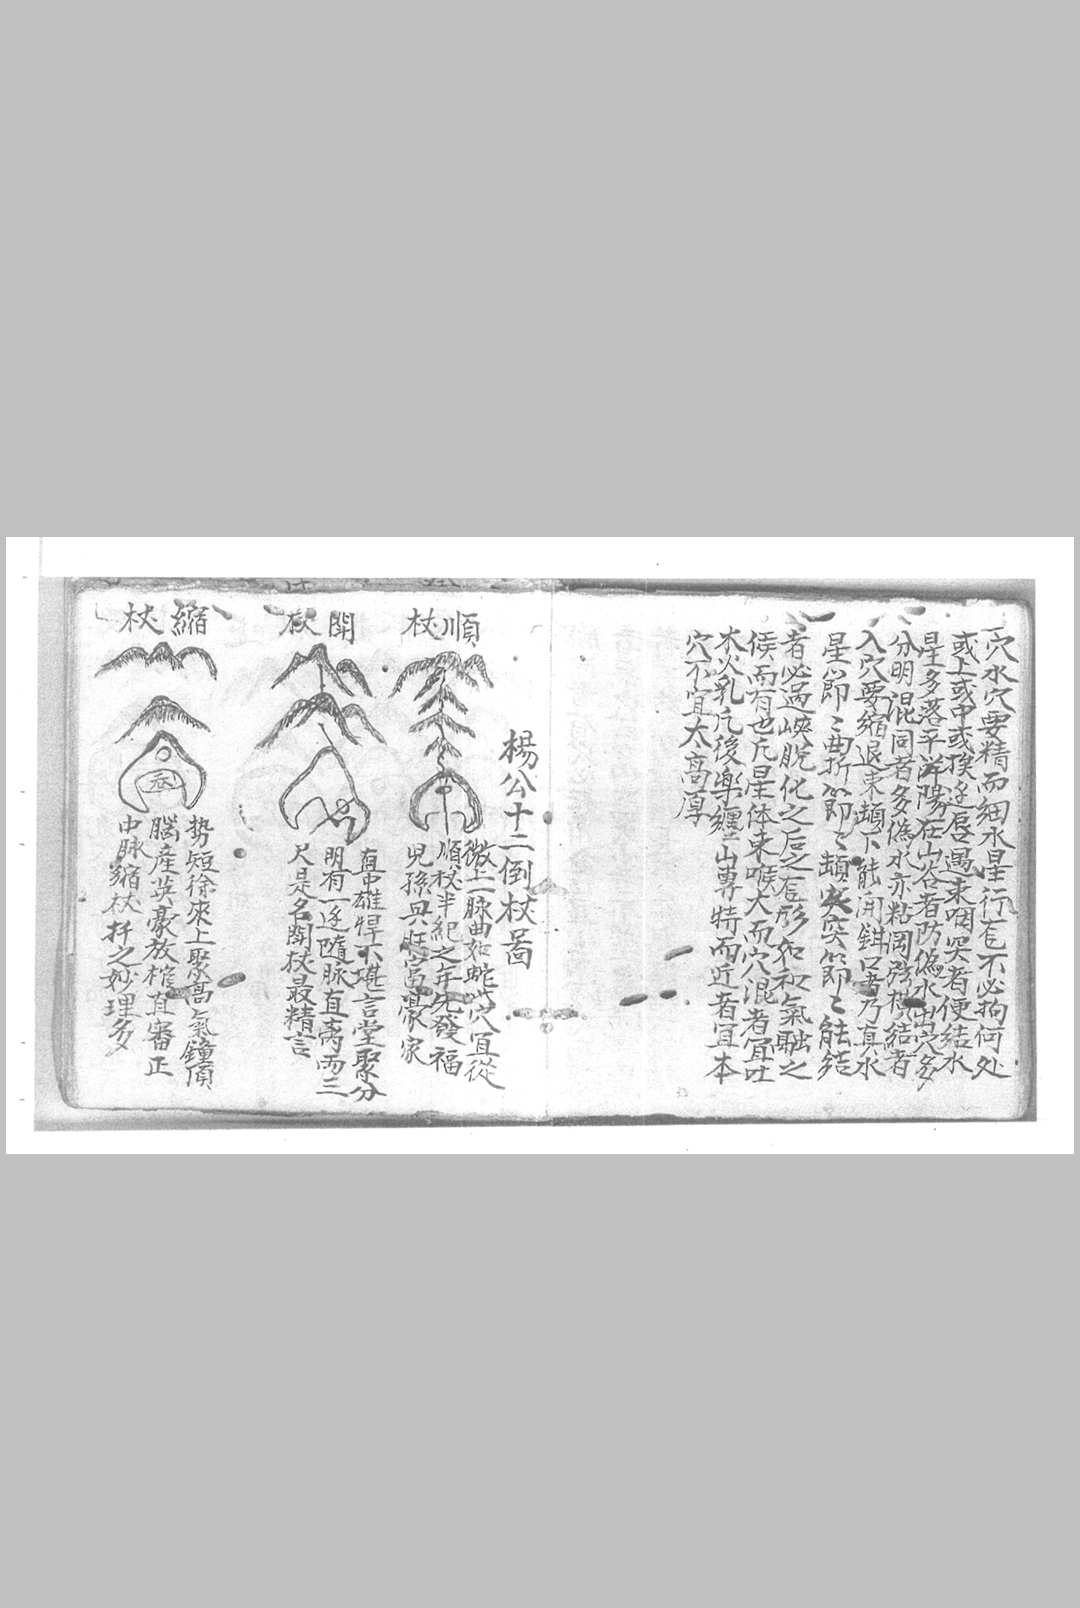 一穴水穴要精而細水星行龍不必拘何处
或上或中或挨逆唇遇束咽突者便結水
星多落平洋陽在山谷者防偽水出穴多
分明混同者多偽水亦粘岡弦橫結者
入穴要縮退束頡下能開鉗口者乃真水
星節〻曲折節〻頡突節〻能結
者必過峽脫化之后之龍形如和氣融之
候而有也凡星体束喉大而穴混者宜吐
木火乳凢後樂纏山專特而近者宜本
穴不宜太高厚
楊公十二倒杖啚
順杖
微上一脉曲如蛇此穴宜從
順杖半紀之年先發福
兒孫興旺富豪家
開杖
直中雄悍不堪言堂聚分
明有一逆隨脉直离而三
尺是名開杖最精言
縮杖
势短徐來上聚高氣鐘頂
腦產英豪放棺直審正
中脉縮杖扦之妙理多